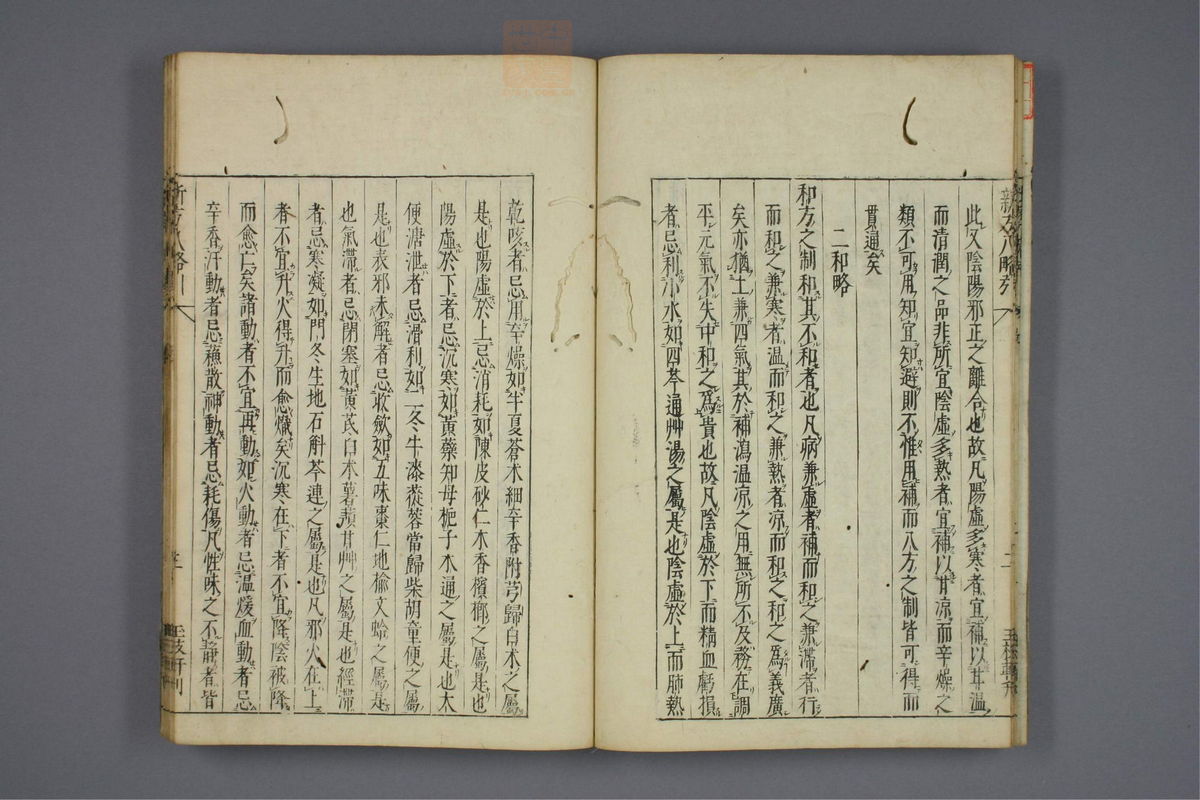 此又陰陽邪正之離合也故凡陽虛多寒者宜補以甘温
而清潤之品非所宜陰虛多熱者宜補以甘凉而辛燥之
類不可用知宜知避則不惟用補而八方之制皆可得而
貫通矣
二和略
和方之制和其不和者也凡病兼虛者補而和之兼滯者行
而和之兼寒者温而和之兼熱者凉而和之和之為義廣
矣亦猶土兼四氣其於補瀉温凉之用無所不及務在調
平元氣不失中和之為貴也故凡陰虛於下而精血虧損
者忌利小水如四苓通艸湯之屬是也陰虛於上而肺熱
乾咳者忌用辛燥如半夏蒼朮細辛香附芎歸白朮之屬
是也陽虛於上忌消耗如陳皮砂仁木香檳榔之屬是也
陽虛於下者忌沉寒如黃蘗知母梔子木通之屬是也大
便溏泄者忌滑利如二冬牛漆蓯蓉當歸柴胡童便之屬
是也表邪未解者忌收斂如五味棗仁地榆文蛤之屬是
也氣滯者忌閉塞如黃芪白朮薯蕷甘艸之屬是也經滯
者忌寒凝如門冬生地石斛芩連之屬是也凡邪火在上
者不宜升火得升而愈熾矣沉寒在下者不宜降陰被降
而愈亡矣諸動者不宜再動如火動者忌温煖血動者忌
辛香汗動者忌蘓散神動者忌耗傷凡性味之不靜者皆
新方八略引